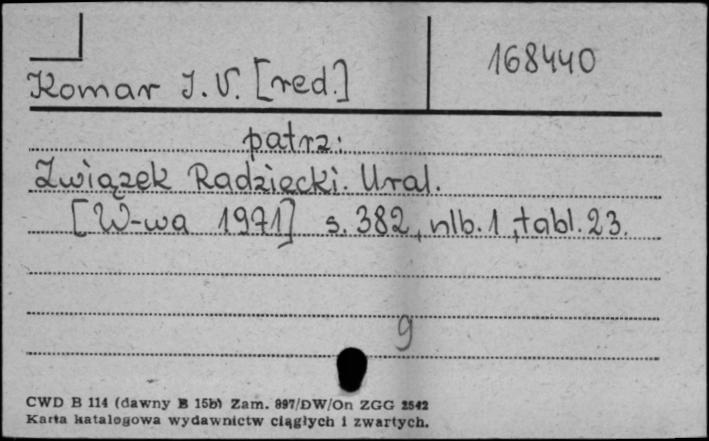 168440
Komar I. V. [red.]
patrz:
Związek Radziecki. Ural.
[W-wa 1971] s. 382, nlb. 1, tabl. 23.
9
CWD B 114 (dawny B 15b) Zam. 897/DW/On ZGG 2542
Karta katalogowa wydawnictw ciągłych i zwartych.